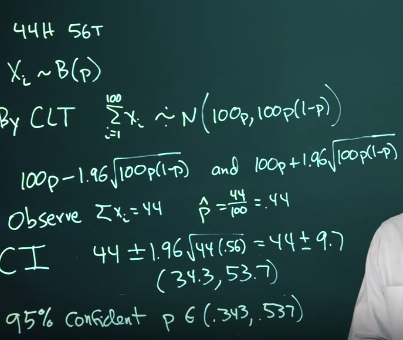 44H 56T
Xᵢ ~ B(p)
By CLT ∑ᵢ₌₁¹⁰⁰ xᵢ ∻ N(100p, 100p(1-p))
100p - 1.96√100p(1-p) and 100p + 1.96√100p(1-p)
Observe Σxᵢ = 44 p̂ = 44/100 = .44
CI 44 ± 1.96√44(.56) = 44 ± 9.7
(34.3, 53.7)
95% Confident p ∈ (.343, .537)